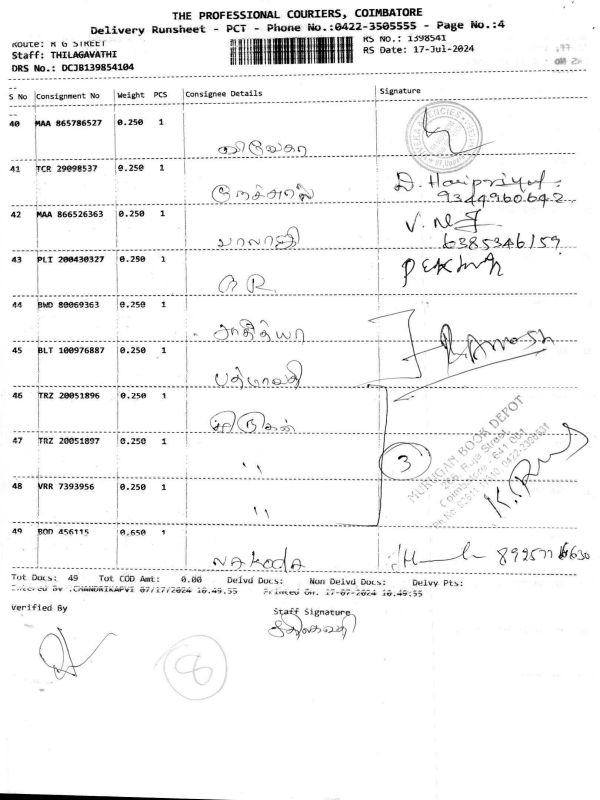 THE PROFESSIONAL COURIERS, COIMBATORE
Delivery Runsheet - PCT - Phone No.:0422-3505555 - Page No.:4
Route: R G STREET
RS No.: 1398541
Staff: THILAGAVATHI
RS Date: 17-Jul-2024
DRS No.: DCJB139854104
S No Consignment No Weight PCS Consignee Details Signature
40 MAA 865786527 0.250 1
41 TCR 29098537 0.250 1
D. Haripriya
9344960642
42 MAA 866526363 0.250 1
பாலாஜி
6385346159
43 PLI 200430327 0.250 1
R
44 BWD 80069363 0.250 1
சாதித்யா
45 BLT 100976887 0.250 1
பத்மாவதி
46 TRZ 20051896 0.250 1
முருகன்
47 TRZ 20051897 0.250 1
"
3
MURUGAN BOOK DEPOT
Raja Street
Coimbatore - 641 001
48 VRR 7393956 0.250 1
"
49 BOD 456115 0.650 1
Nakoda
Tot Docs: 49 Tot COD Amt: 0.00 Delvd Docs: Non Delvd Docs: Delvy Pts:
Entered By :CHANDRIKAPVI 07/17/2024 10.49.55 Printed On: 17-07-2024 10.49:55
Verified By
Staff Signature
திலகவதி
8